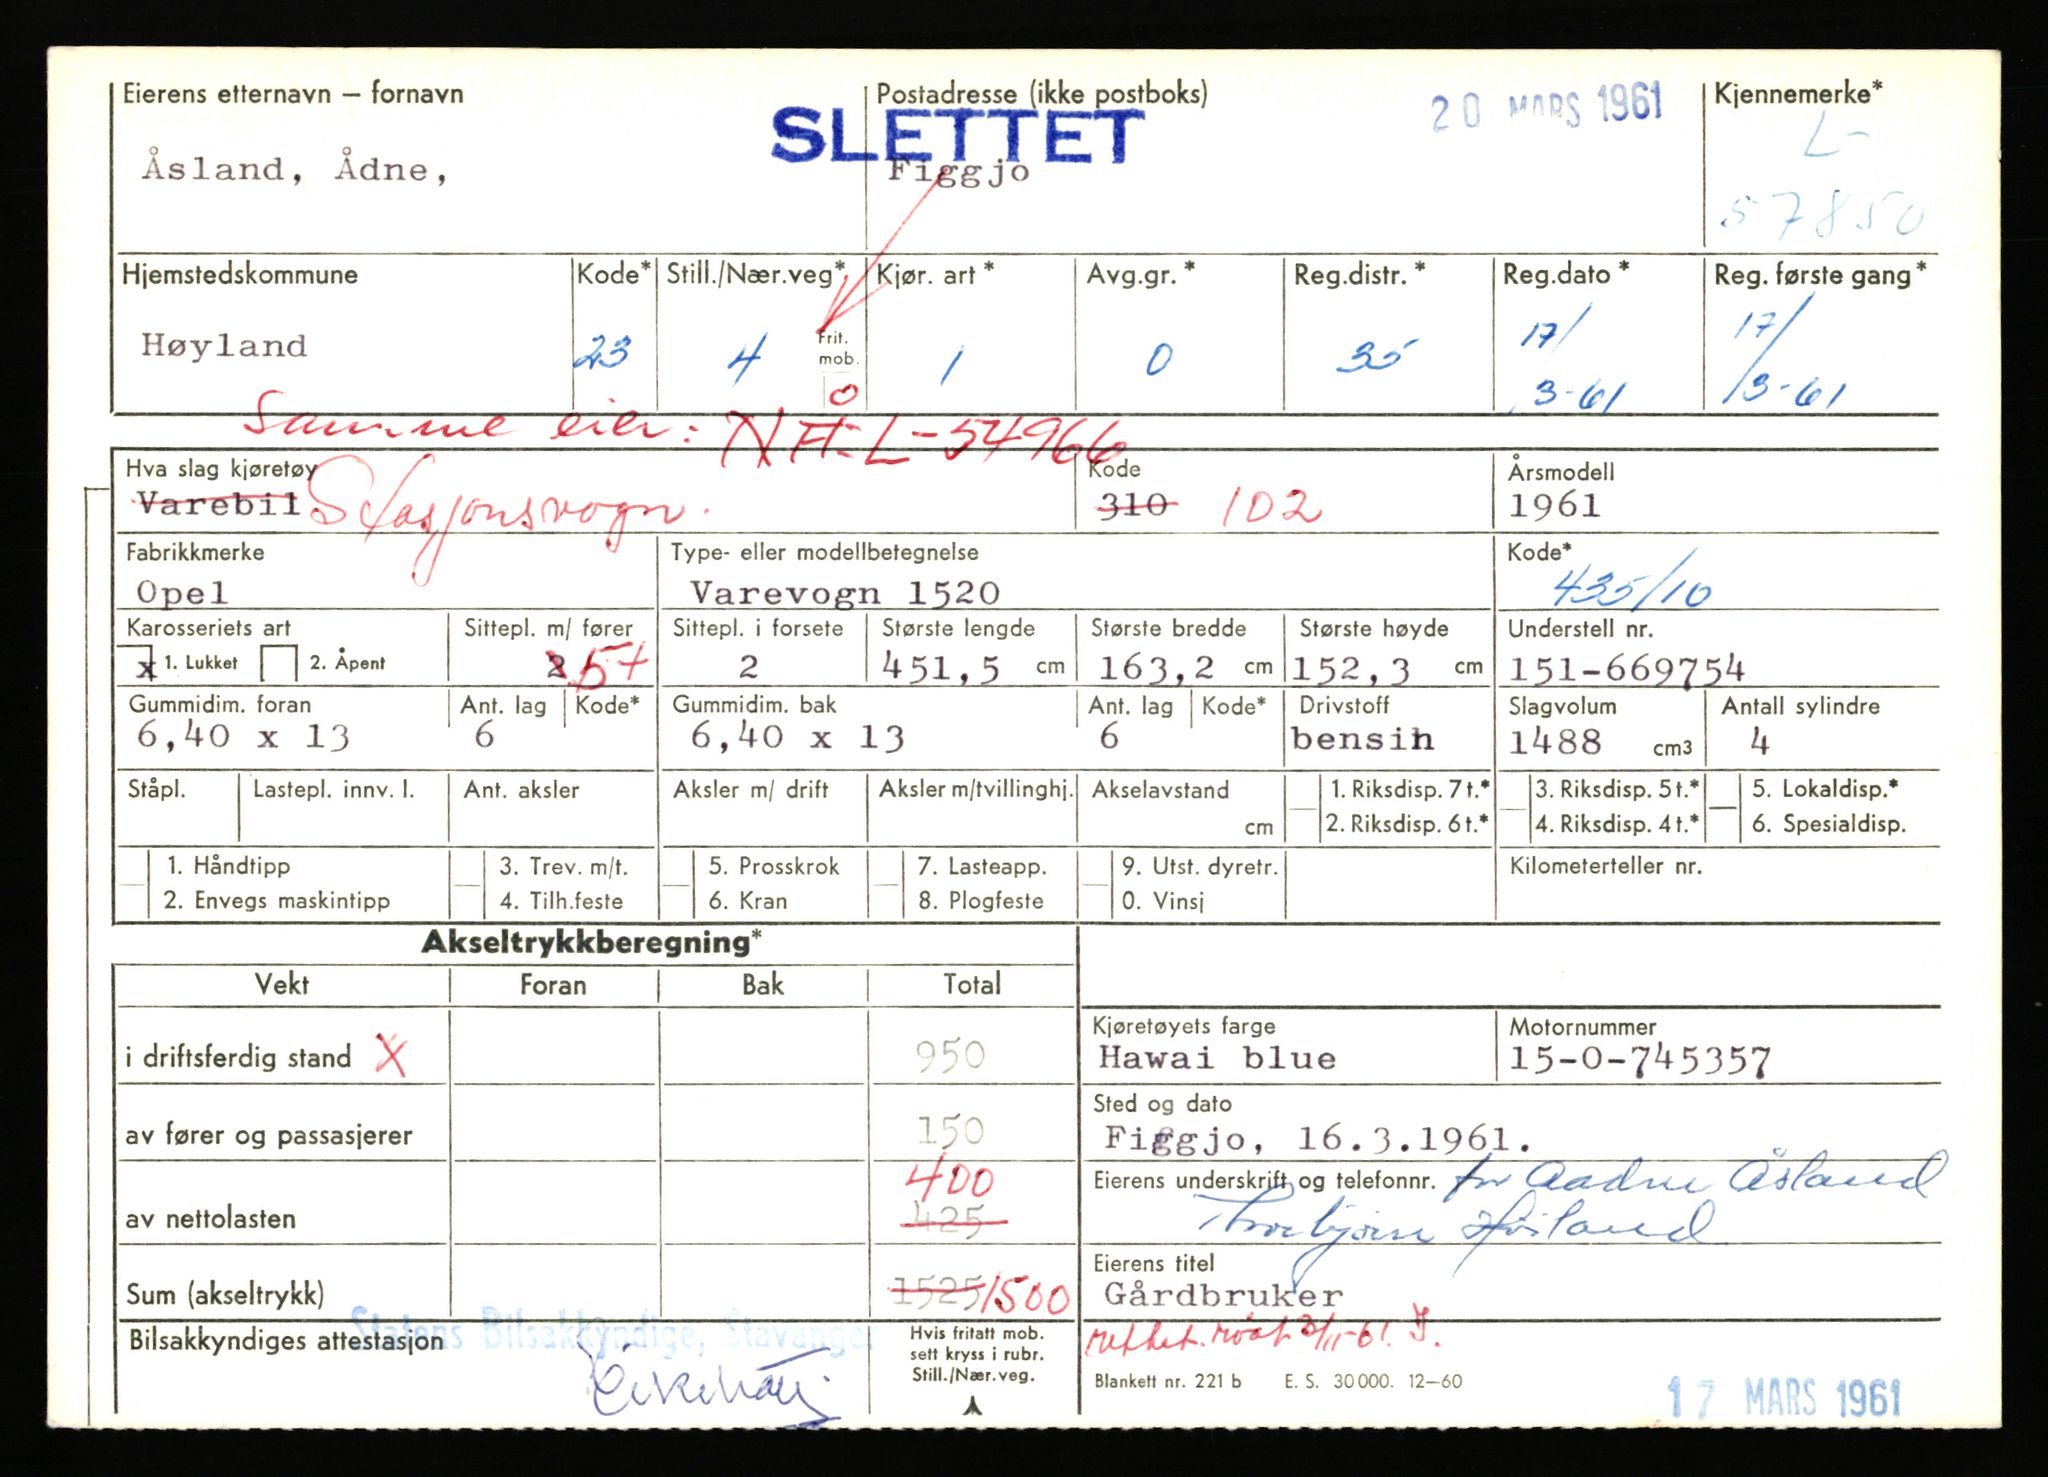 Eierens etternavn – fornavn Postadresse (ikke postboks) 20 MARS 1961 Kjennemerke*
SLETTET L-
Åsland, Ådne, Figgjo 57850
Hjemstedskommune Kode* Still./Nær.veg* Kjør. art* Avg.gr.* Reg.distr.* Reg.dato* Reg. første gang*
Høyland 23 4 Frit. mob. 0 1 0 35 17/3-61 17/3-61
Samme eier: NÅ L-54966
Hva slag kjøretøy Kode Årsmodell
Varebil. Stasjonsvogn. 310 102 1961
Fabrikkmerke Type- eller modellbetegnelse Kode*
Opel Varevogn 1520 435/10
Karosseriets art Sittepl. m/ fører Sittepl. i forsete Største lengde Største bredde Største høyde Understell nr.
x 1. Lukket 2. Åpent 2 5+ 2 451,5 cm 163,2 cm 152,3 cm 151-669754
Gummidim. foran Ant. lag Kode* Gummidim. bak Ant. lag Kode* Drivstoff Slagvolum Antall sylindre
6,40 x 13 6 6,40 x 13 6 bensin 1488 cm3 4
Ståpl. Lastepl. innv. l. Ant. aksler Aksler m/ drift Aksler m/tvillinghj. Akselavstand 1. Riksdisp. 7 t.* 3. Riksdisp. 5 t.* 5. Lokaldisp.*
cm 2. Riksdisp. 6 t.* 4. Riksdisp. 4 t.* 6. Spesialdisp.
1. Håndtipp 3. Trev. m/t. 5. Prosskrok 7. Lasteapp. 9. Utst. dyretr. Kilometerteller nr.
2. Envegs maskintipp 4. Tilh.feste 6. Kran 8. Plogfeste 0. Vinsj
Akseltrykkberegning*
Vekt Foran Bak Total
Kjøretøyets farge Motornummer
i driftsferdig stand X 950 Hawai blue 15-0-745357
Sted og dato
av fører og passasjerer 150 Figgjo, 16.3.1961.
400
Eierens underskrift og telefonnr. for Aadne Åsland
av nettolasten 425 Torbjørn Høiland
Eierens titel
Sum (akseltrykk) 1525 1500 Gårdbruker
Statens Bilsakkyndige, Stavanger
Bilsakkyndiges attestasjon Hvis fritatt mob. sett kryss i rubr. Still./Nær.veg.
Blankett nr. 221 b E. S. 30 000. 12–60
17 MARS 1961